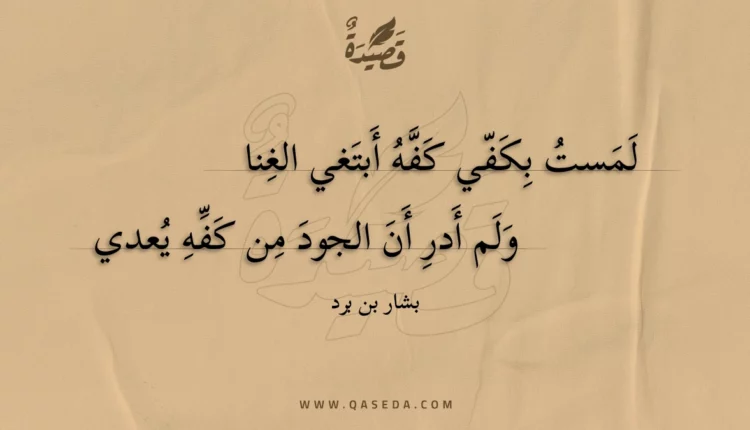 قَصِيْدَةٌ
لَمَستُ بِكَفّي كَفَّهُ أَبتَغي الغِنا
وَلَم أَدرِ أَنَ الجودَ مِن كَفِّهِ يُعدي
بشار بن برد
WWW.QASEDA.COM